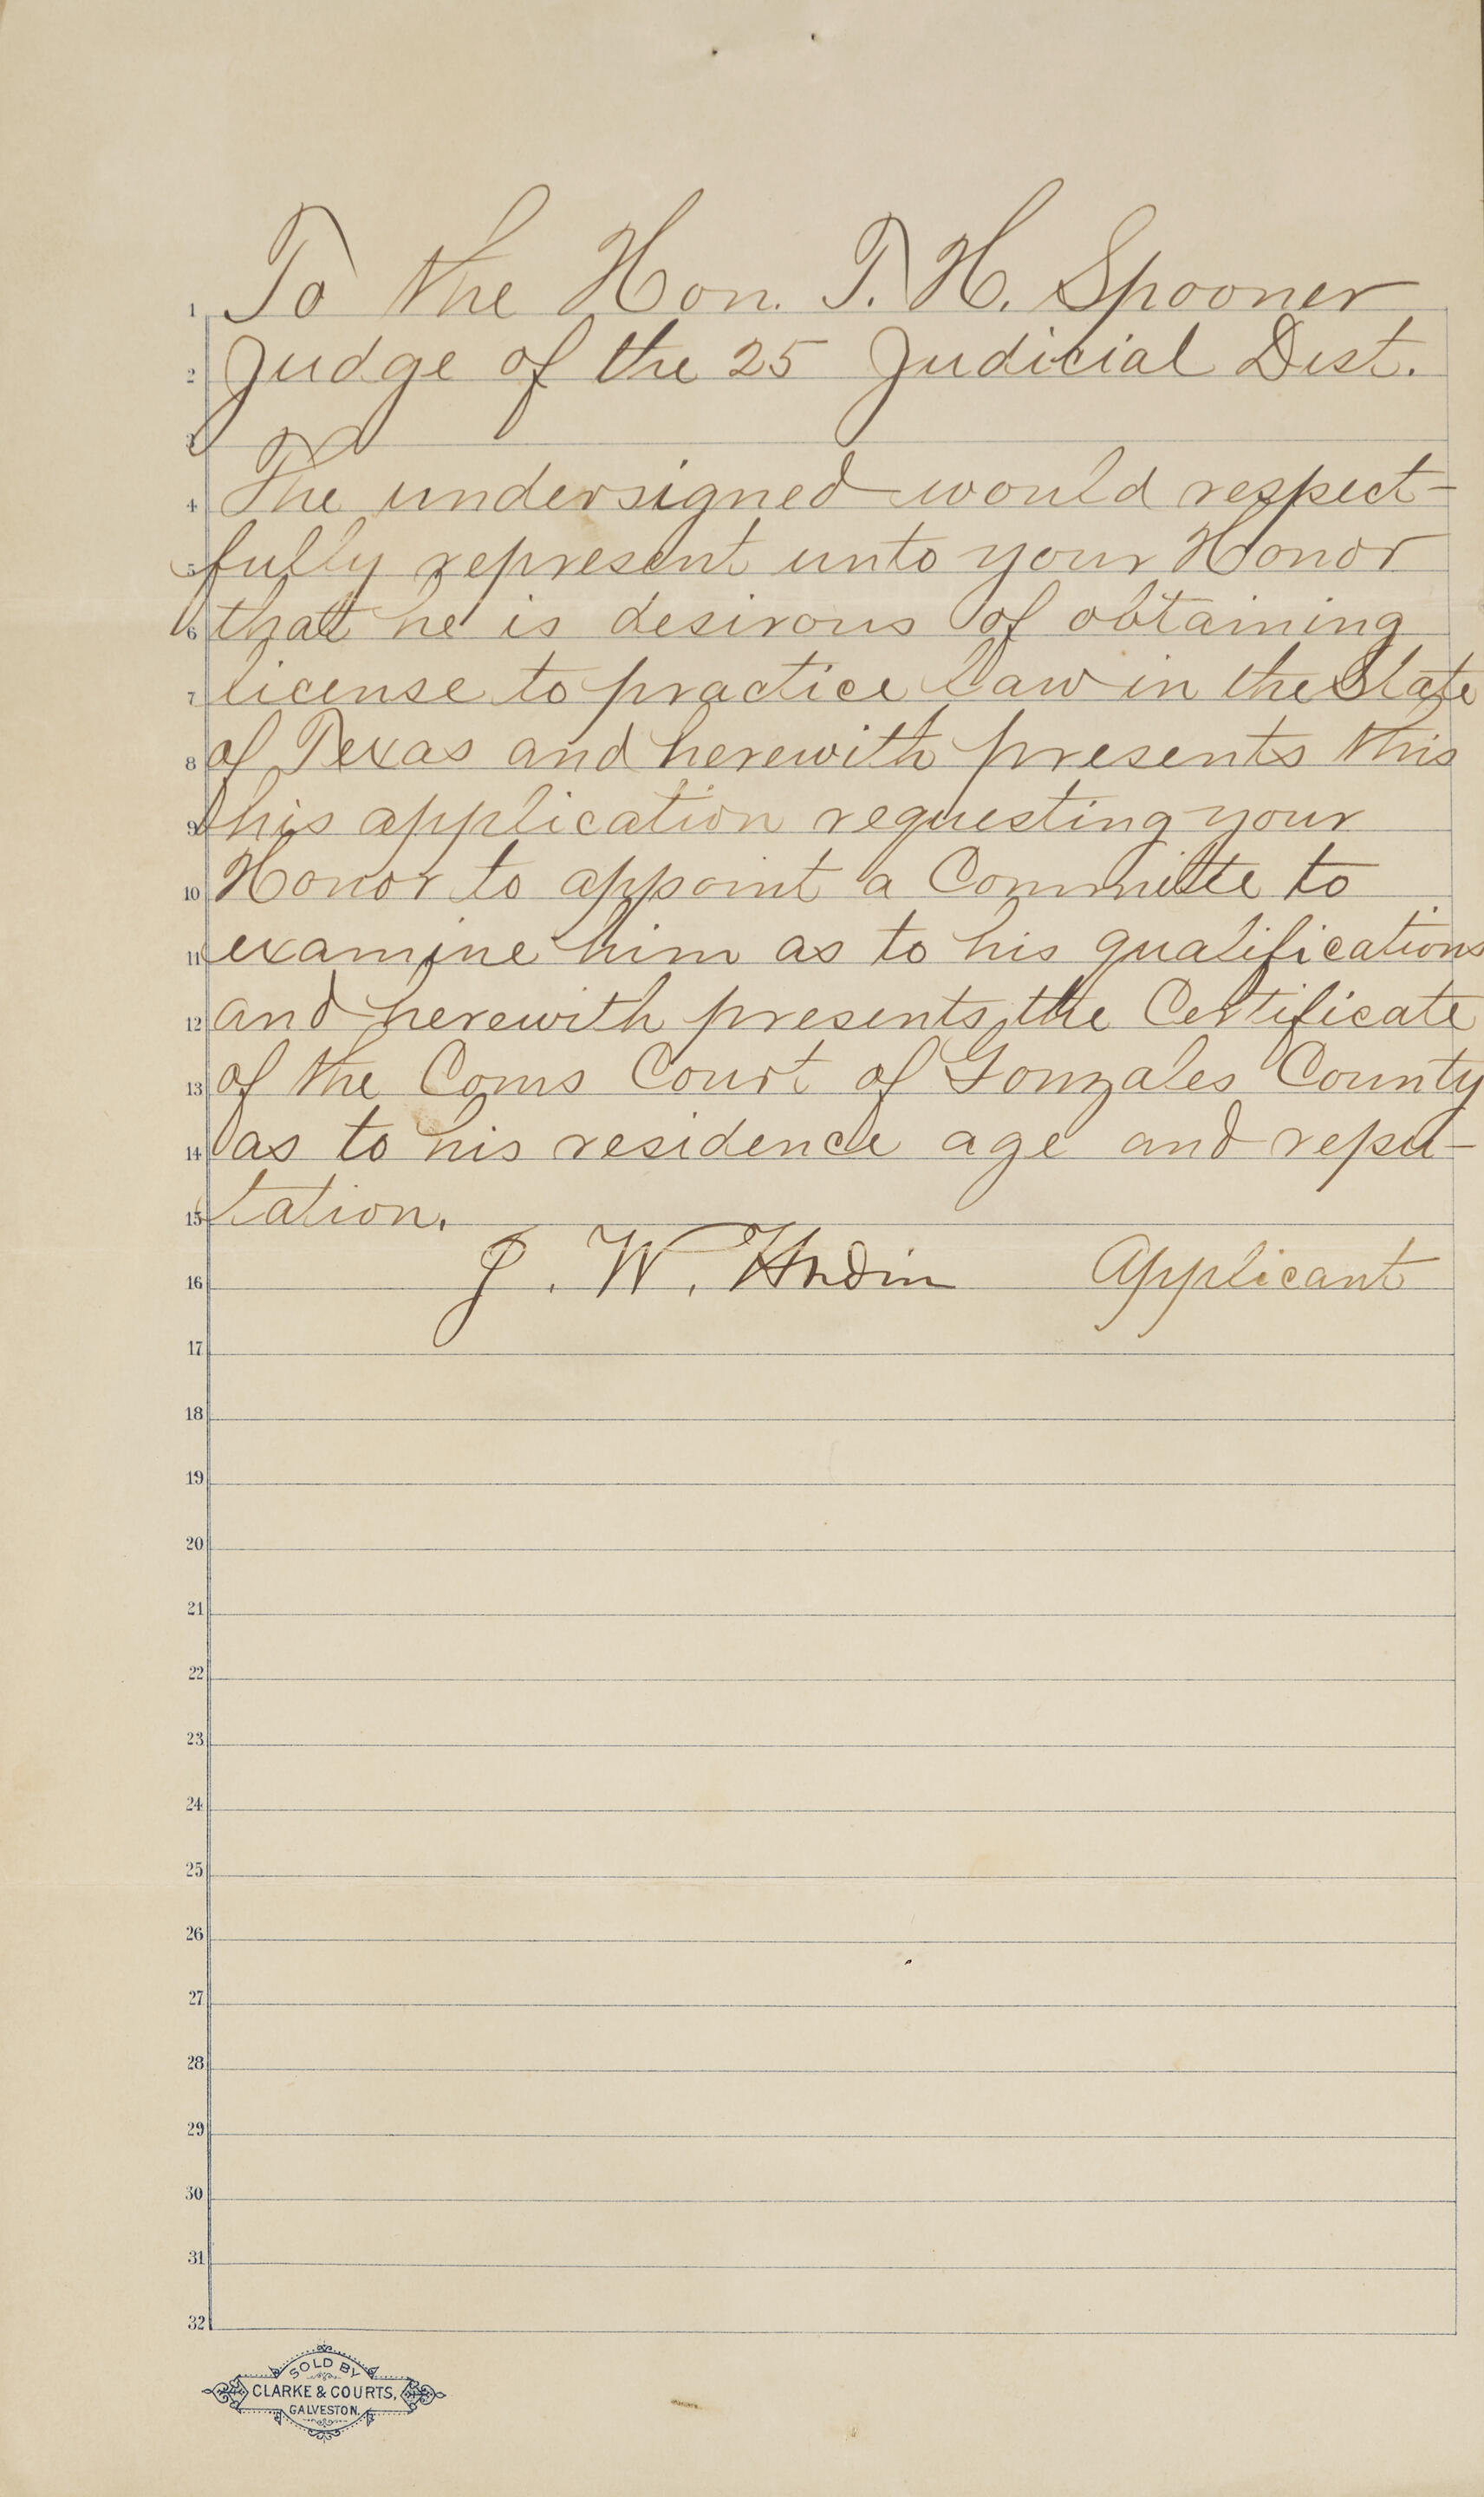 1 To the Hon. T. H. Spooner
2 Judge of the 25 Judicial Dist.
3
4 The undersigned would respect-
5 fully represent unto your Honor
6 that he is desirous of obtaining
7 license to practice Law in the State
8 of Texas and herewith presents this
9 his application requesting your
10 Honor to appoint a Committe to
11 examine him as to his qualifications
12 and herewith presents the Certificate
13 of the Coms Court of Gonzales County
14 as to his residence age and repu-
15 tation.
16 J. W. Hardin Applicant
17
18
19
20
21
22
23
24
25
26
27
28
29
30
31
32
SOLD BY
CLARKE & COURTS,
GALVESTON.